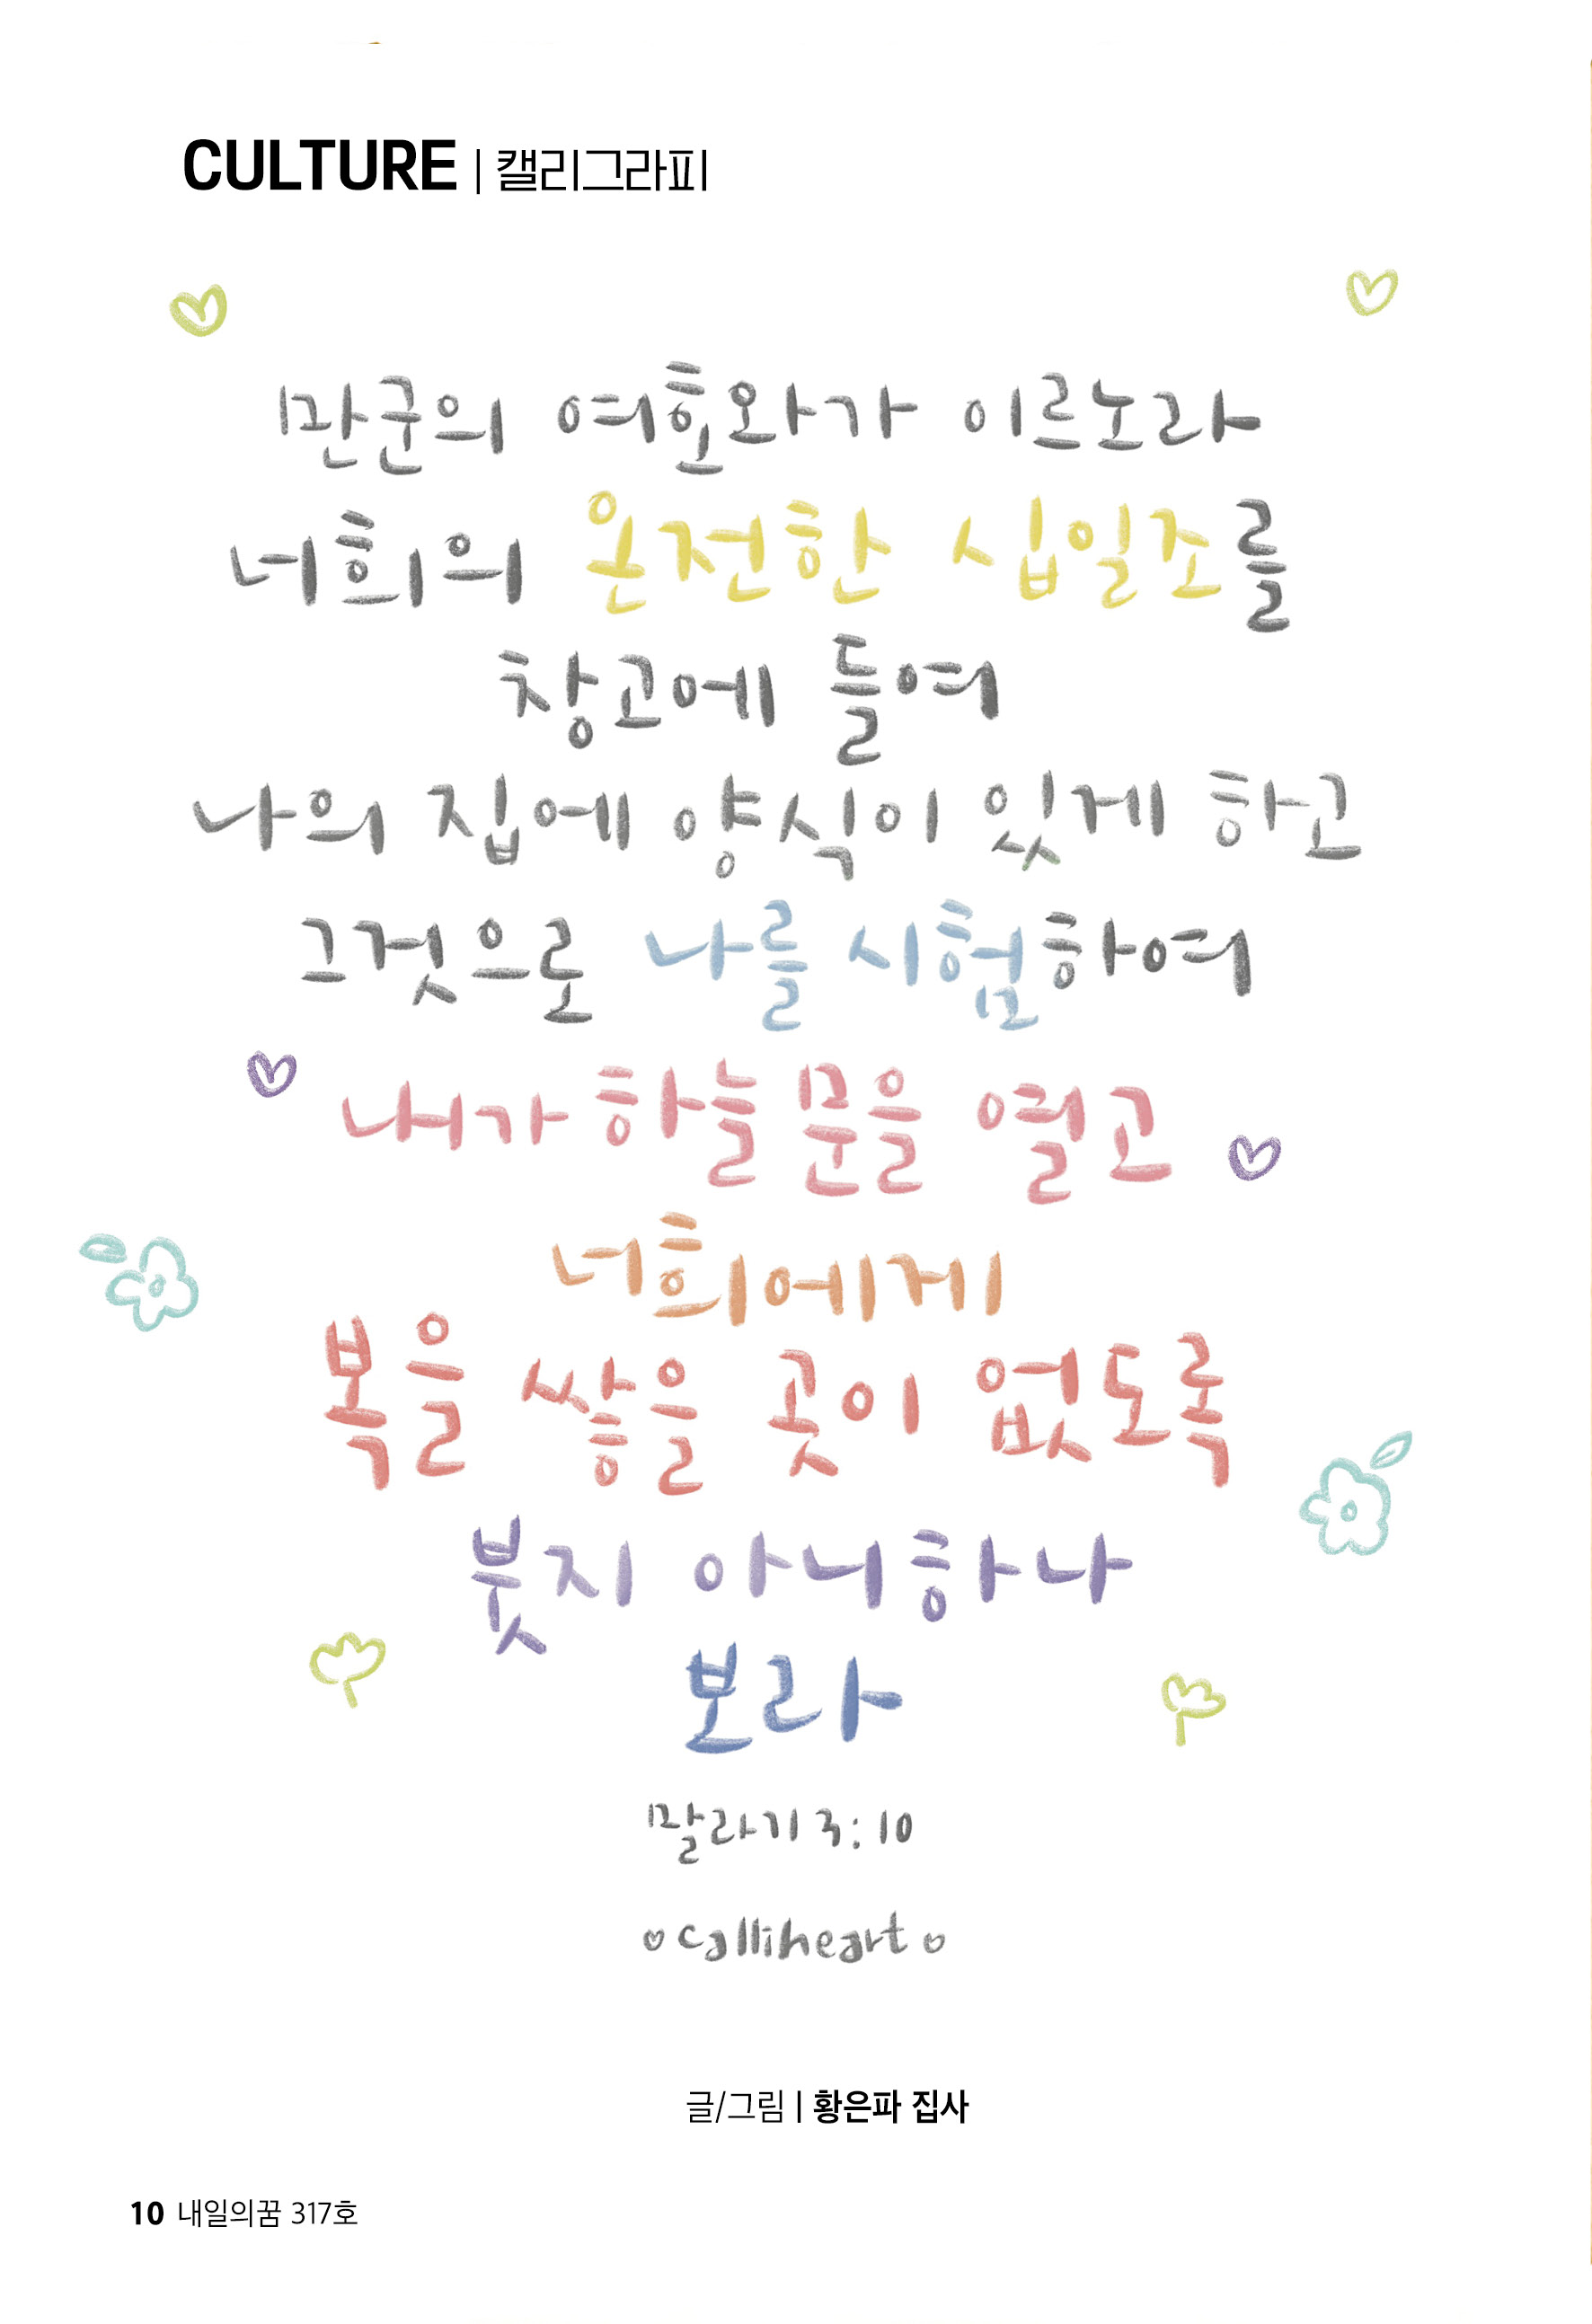 CULTURE | 캘리그라피
만군의 여호와가 이르노라
너희의 온전한 십일조를
창고에 들여
나의 집에 양식이 있게 하고
그것으로 나를 시험하여
내가 하늘 문을 열고
너희에게
복을 쌓을 곳이 없도록
붓지 아니하나
보라
말라기 3:10
calliheart
글/그림 | 황은파 집사
10 내일의꿈 317호